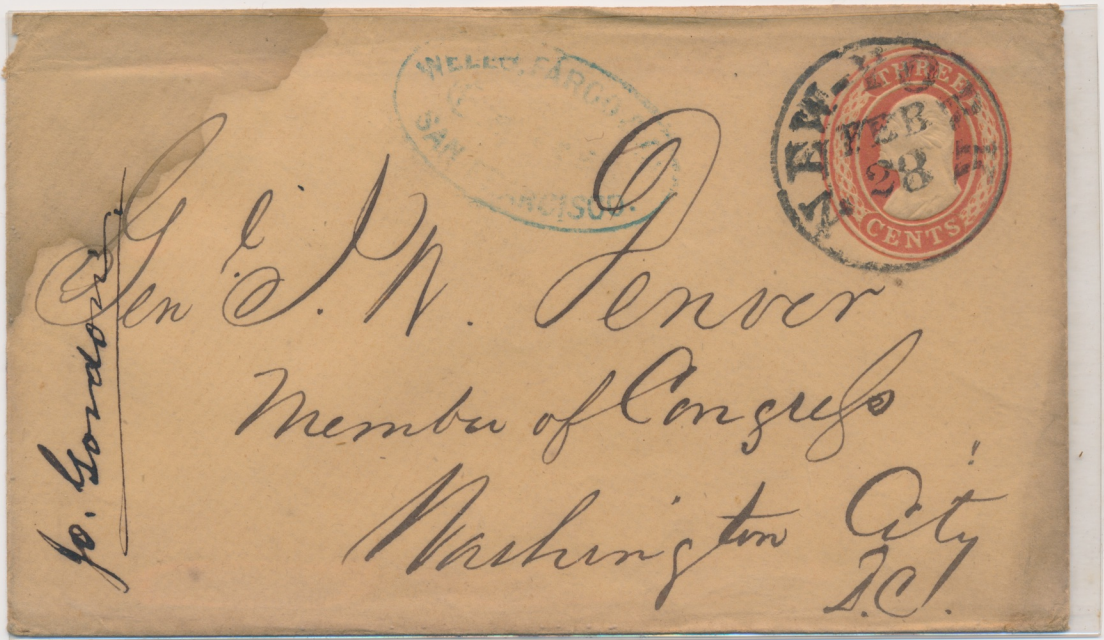 WELLS, FARGO
SAN FRANCISCO.
NEW-YORK
FEB
28
THREE
CENTS
Gen J. W. Denver
Member of Congress
Washington City
D.C.
Jo. Gordon